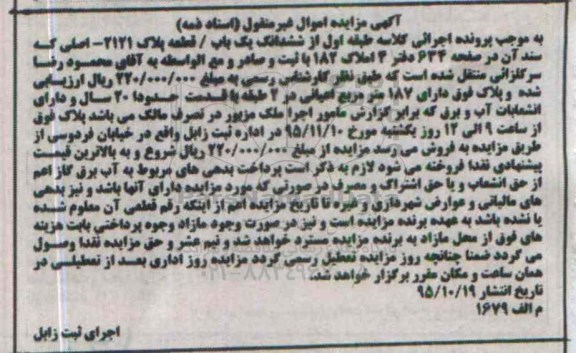 آگهی مزایده اموال غیرمنقول (اسناد ذمه)
به موجب پرونده اجرائی کلاسه طبقه اول از ششدانگ یک باب / قطعه پلاک ۲۱۲۱- اصلی که
سند آن در صفحه ۶۳۴ دفتر ۳ املاک ۱۸۲ با ثبت و صادر و مع الواسطه به آقای محمود رضا
سرگلزائی منتقل شده است که طبق نظر کارشناس رسمی به مبلغ ۲۲۰/۰۰۰/۰۰۰ ریال ارزیابی
شده و پلاک فوق دارای ۱۸۷ متر مربع اعیانی در ۲ طبقه با قدمت حدودا ۲۰ سال و دارای
انشعابات آب و برق که برابر گزارش مامور اجرا ملک مزبور در تصرف مالک می باشد پلاک فوق
از ساعت ۹ الی ۱۲ روز یکشنبه مورخ ۹۵/۱۱/۱۰ در اداره ثبت زابل واقع در خیابان فردوسی از
طریق مزایده به فروش می رسد مزایده از مبلغ ۲۲۰/۰۰۰/۰۰۰ ریال شروع و به بالاترین قیمت
پیشنهادی نقدا فروخته می شود لازم به ذکر است پرداخت بدهی های مربوط به آب برق گاز اعم
از حق انشعاب و یا حق اشتراک و مصرف در صورتی که مورد مزایده دارای آنها باشد و نیز بدهی
های مالیاتی و عوارض شهرداری و ... تا تاریخ مزایده اعم از اینکه رقم قطعی آن معلوم شده
یا نشده باشد به عهده برنده مزایده است و نیز در صورت وجود مازاد وجوه پرداختی بابت هزینه
های فوق از محل مازاد به برنده مزایده مسترد خواهد شد و نیم عشر و حق مزایده نقدا وصول
می گردد ضمنا چنانچه روز مزایده تعطیل رسمی گردد مزایده روز اداری بعد از تعطیلی در
همان ساعت و مکان مقرر برگزار خواهد شد.
تاریخ انتشار ۹۵/۱۰/۱۹
م الف ۱۶۷۹
اجرای ثبت زابل